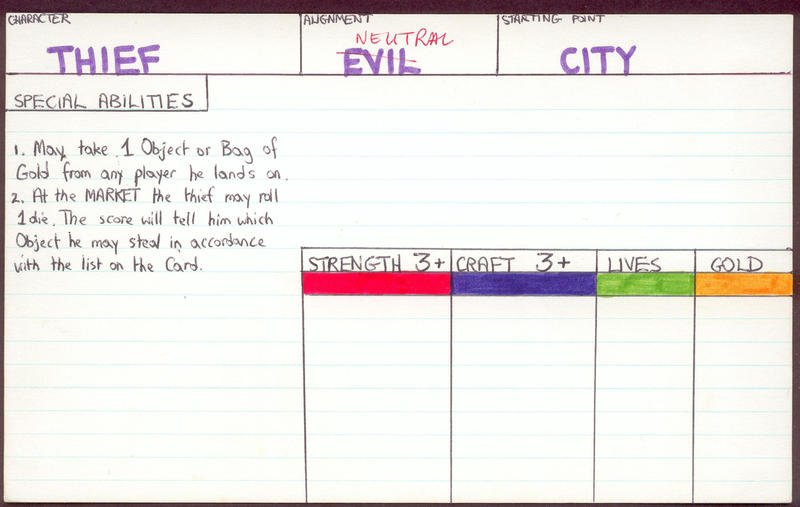 CHARACTER
THIEF
ALIGNMENT
NEUTRAL
EVIL
STARTING POINT
CITY
SPECIAL ABILITIES
1. May take 1 Object or Bag of
Gold from any player he lands on.
2. At the MARKET the thief may roll
1 die. The score will tell him which
Object he may steal in accordance
with the list on the Card.
STRENGTH 3+
CRAFT 3+
LIVES
GOLD